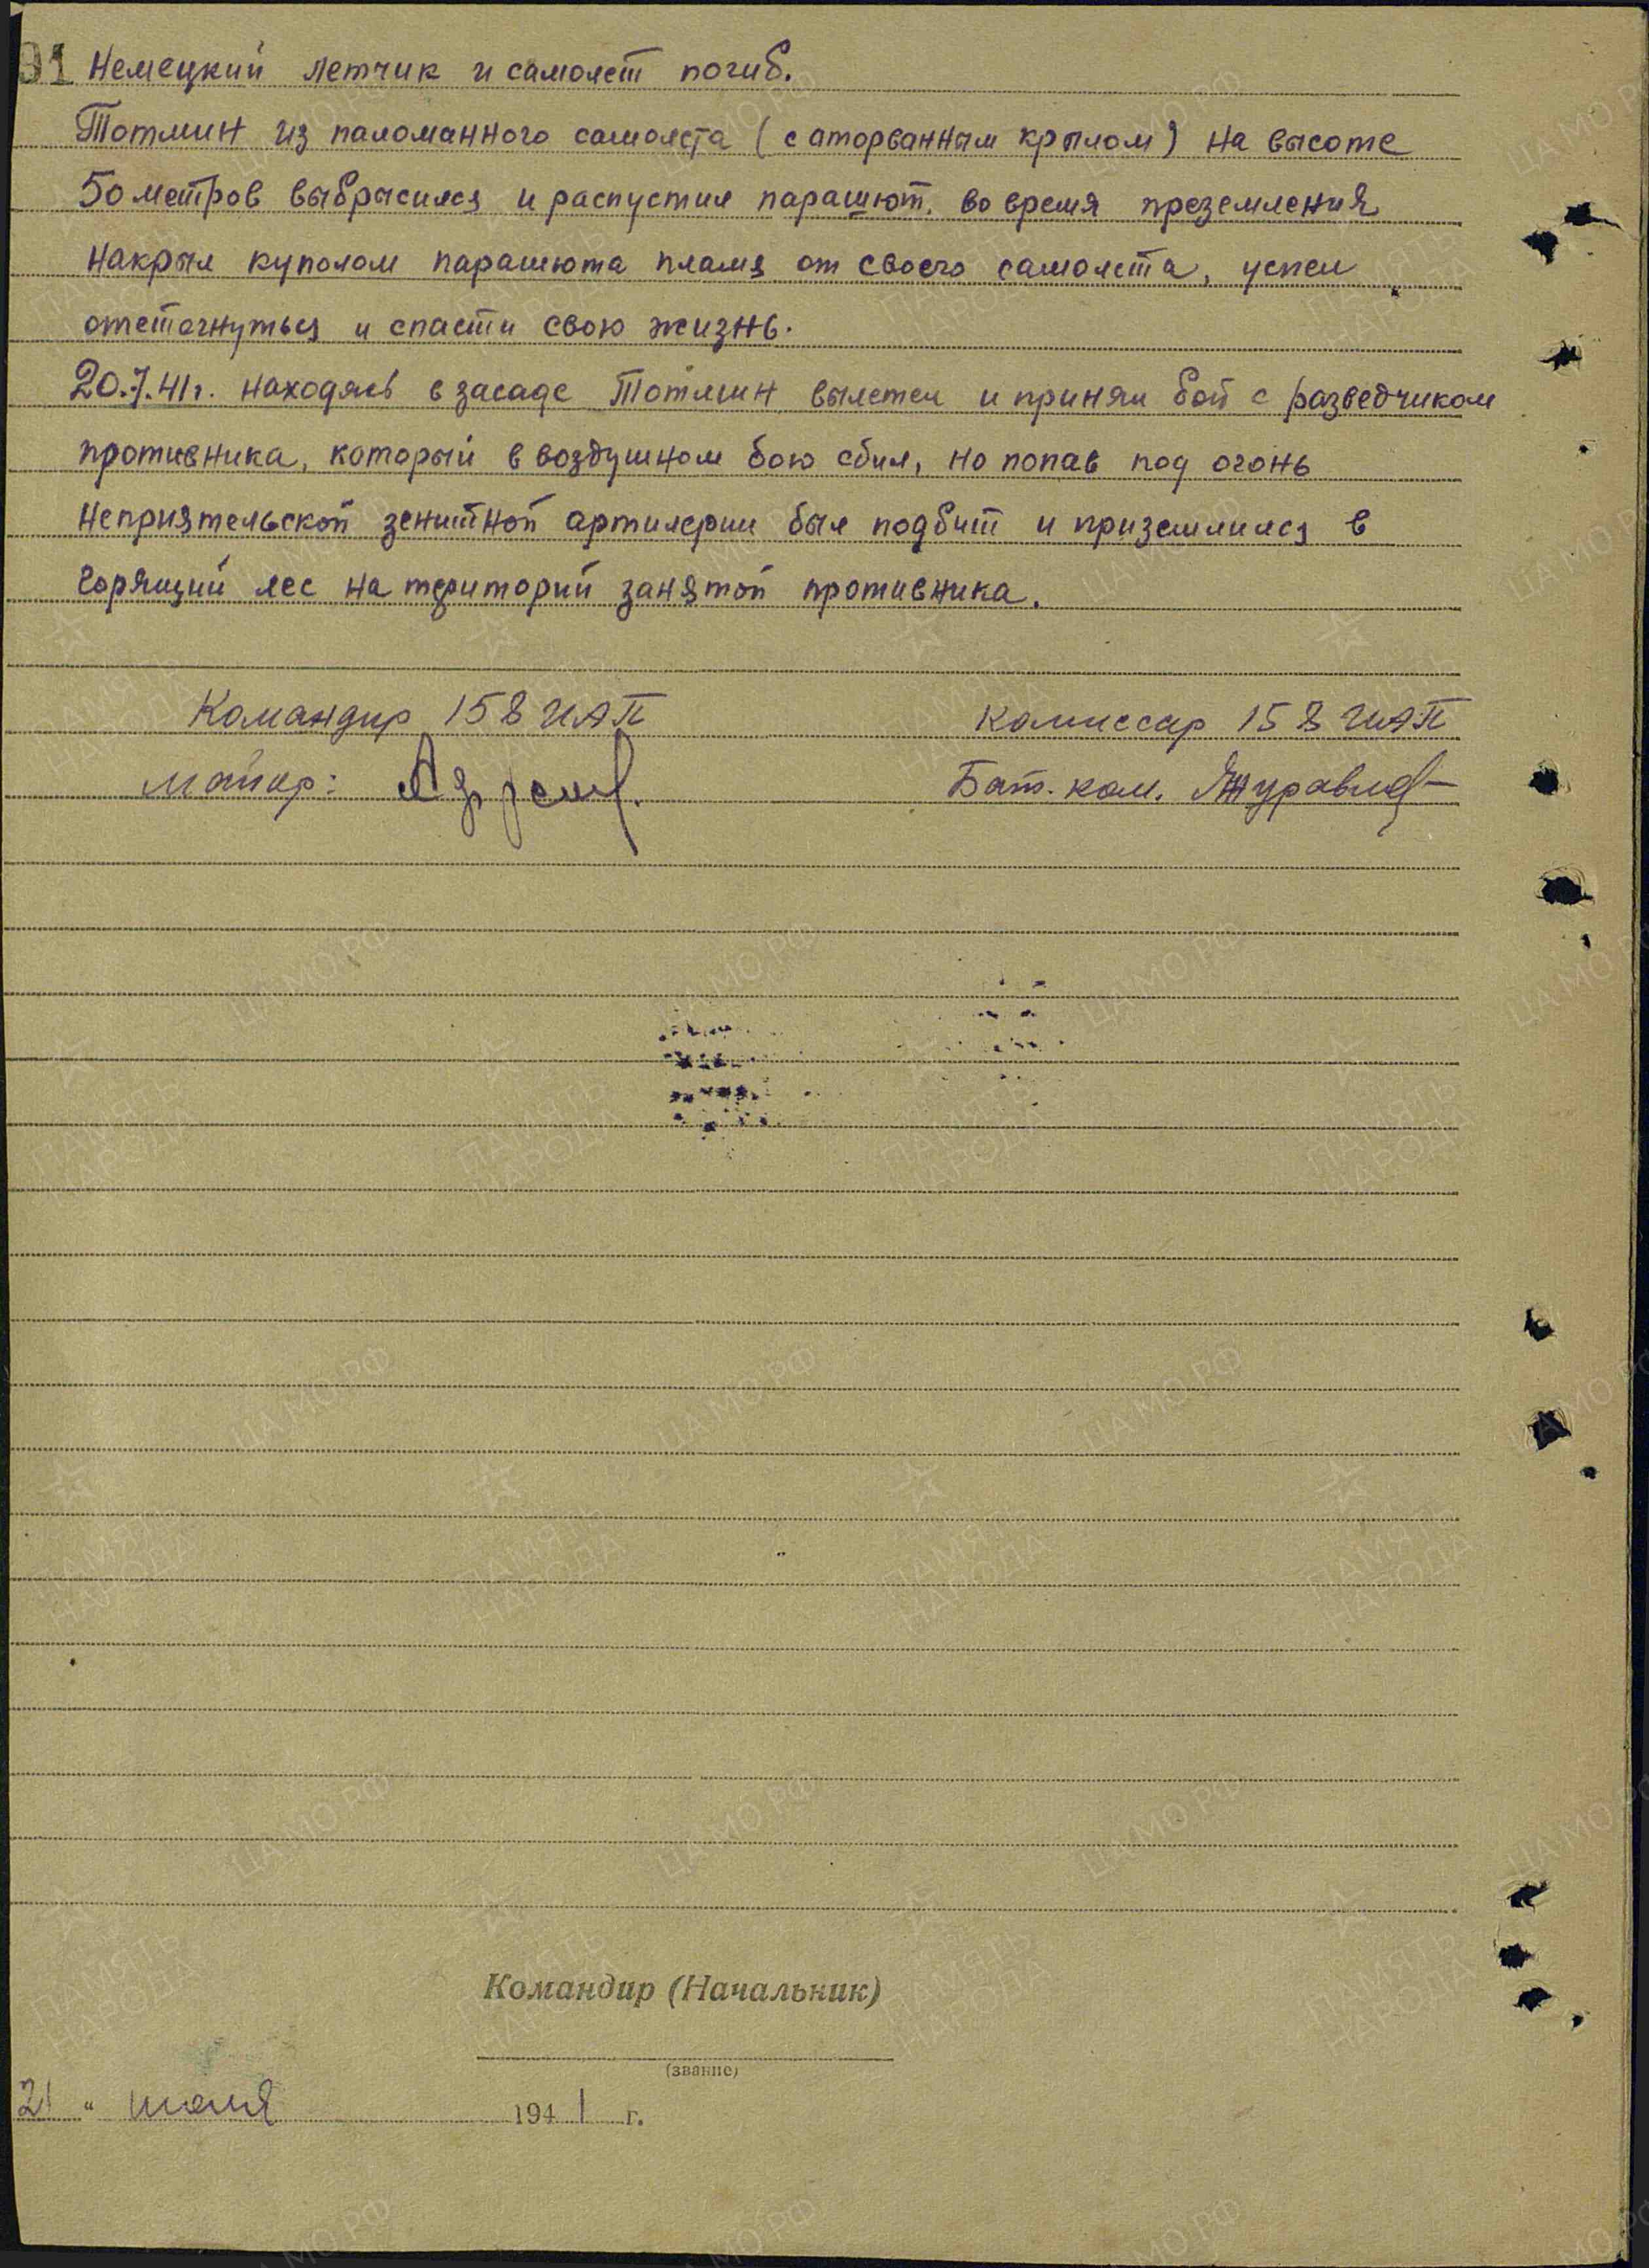 91 Немецкий летчик и самолет погиб.
Тотмин из паломанного самолета (с аторванным крылом) на высоте
50 метров выбрасился и распустил парашют, во время преземления
накрыл куполом парашюта пламя от своего самолета, успел
отстегнуться и спасти свою жизнь.
20.7.41г. находясь в засаде Тотмин вылетел и принял бой с разведчиком
противника, который в воздушном бою сбил, но попав под огонь
неприятельской зенитной артилерии был подбит и приземлился в
горящий лес на територий занятой противника.
Командир 158 ИАП
Комиссар 158 ИАП
майор:
Бат. ком. Журавлев
Командир (Начальник)
(звание)
21 " июля 1941 г.
ЦАМО РФ
ПАМЯТЬ НАРОДА